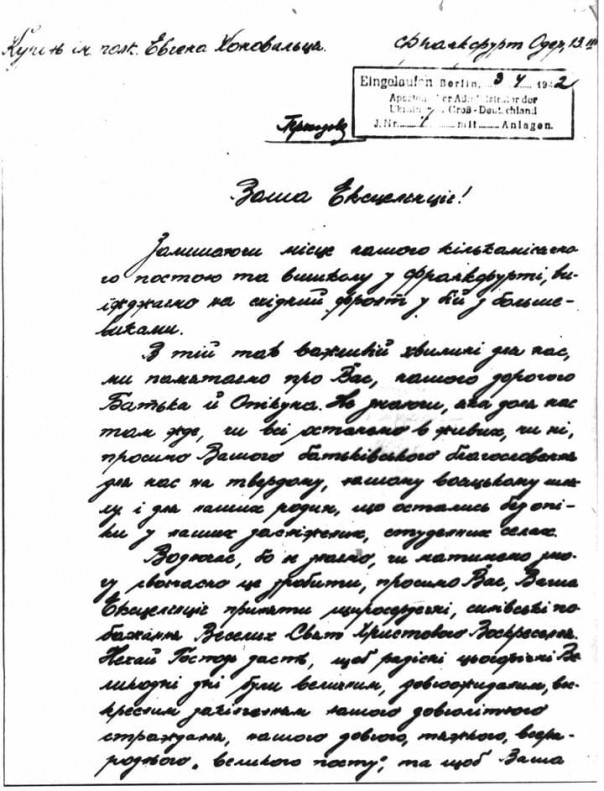 Курінь ім. полк. Евгена Коновальця. Франкфурт Одер, 13.
Eingelaufen Berlin, 3 4 1942
Apostolischer Administrator der
Ukrainer Groß-Deutschland
J. Nr. mit Anlagen.
Ваша Ексцеленціє!
Залишаючи місце нашого кількамісячно-
го постою та вишколу у Франкфурті, ви-
їжджаємо на східний фронт у бій з больше-
виками.
В тій так важливій хвилині для нас,
ми памятаємо про Вас, нашого дорогого
Батька й Опікуна. Не знаючи, яка доля нас
там жде, чи всі останемо в живих, чи ні,
просимо Вашого батьківського благословення
для нас на твердому, нашому вояцькому шля-
ху і для наших родин, що остались без опі-
ки у наших засніжених, студених селах.
Водночас, бо не знаємо, чи матимемо змо-
гу своєчасно це зробити, просимо Вас, Ваша
Ексцеленціє приняти щиросердські, синівські по-
бажання Веселих Свят Христового Воскресення.
Нехай Господь дасть, щоб радісні цьогорічні Ве-
ликодні дні були величним, довгожиданим, вос-
кресним закінченням нашого довголітного
страждання, нашого довгого, тяжкого, всена-
родного „великого посту“, та щоб Ваша